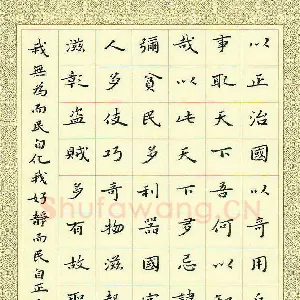 以正治國以奇用兵
事取天下吾何以知
哉以此天下多忌諱
彌貧民多利器國家
人多伎巧奇物滋起
滋彰盜賊多有故聖
我無為而民自化我好靜而民自正
Shufawang.CN